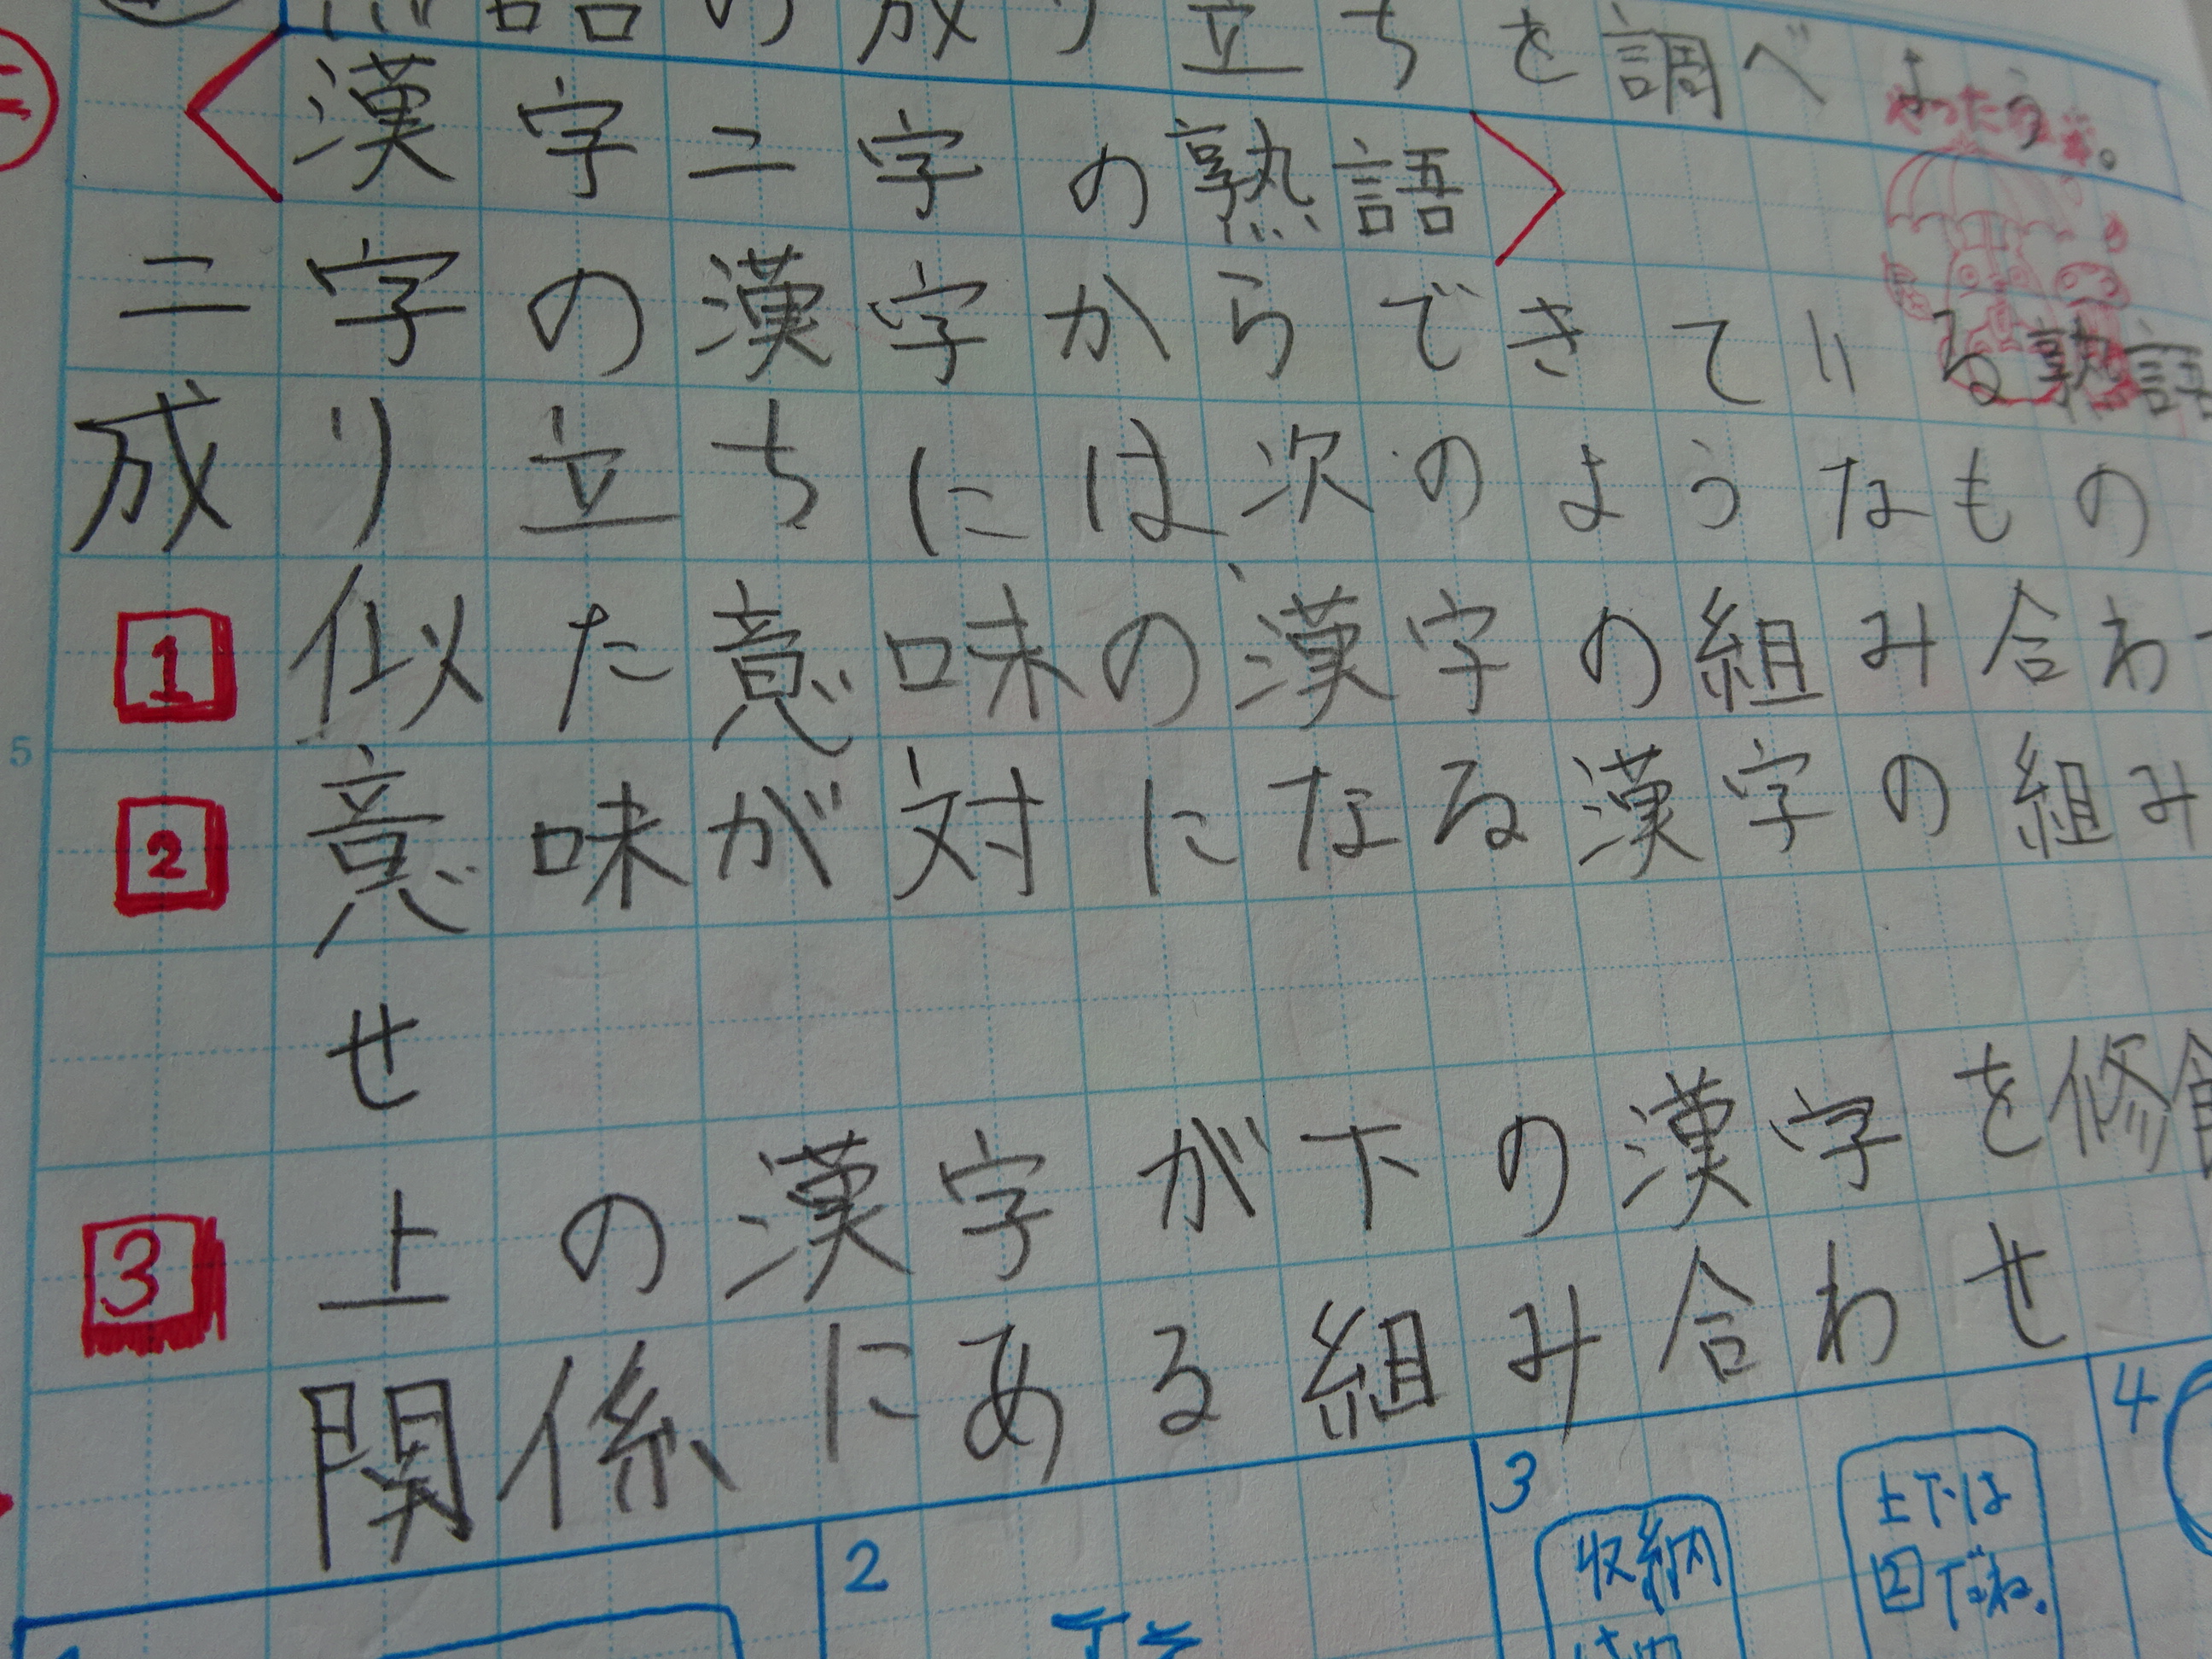 語の成り立ちを調べよう。
漢字二字の熟語
二字の漢字からできている熟語
成り立ちには次のようなもの
1 似た意味の漢字の組み合わ
2 意味が対になる漢字の組み
せ
3 上の漢字が下の漢字を修飾
関係にある組み合わせ
2
3
収納
上下は
2だね。
4
5